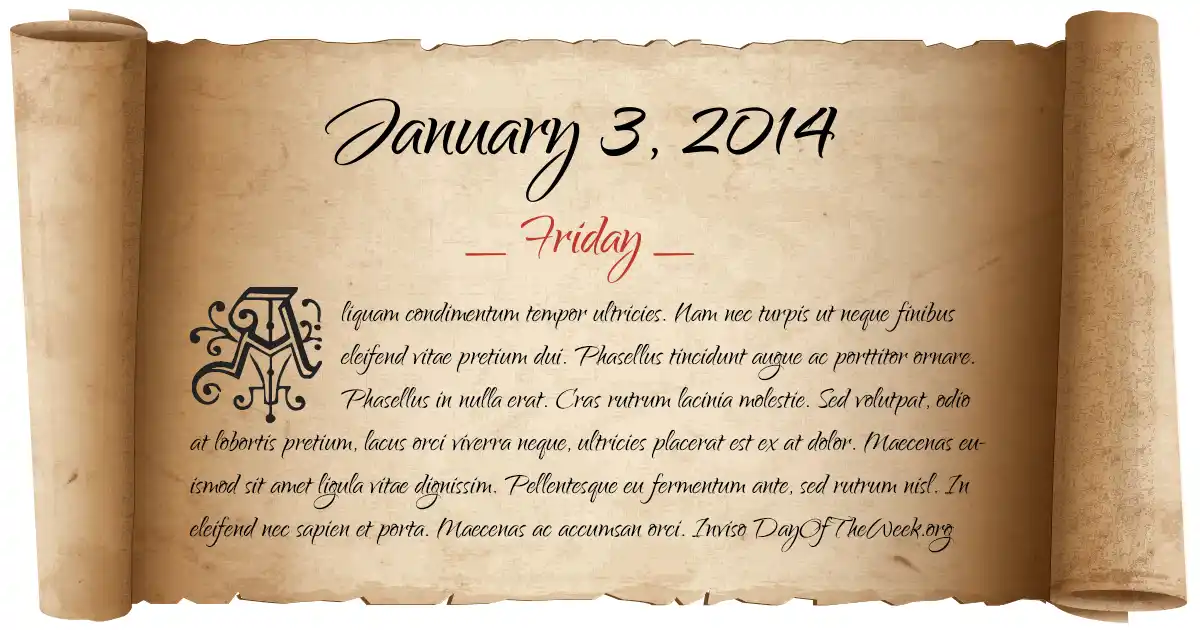 January 3, 2014
_ Friday _
Aliquam condimentum tempor ultricies. Nam nec turpis ut neque finibus
eleifend vitae pretium dui. Phasellus tincidunt augue ac porttitor ornare.
Phasellus in nulla erat. Cras rutrum lacinia molestie. Sed volutpat, odio
at lobortis pretium, lacus orci viverra neque, ultricies placerat est ex at dolor. Maecenas eu-
ismod sit amet ligula vitae dignissim. Pellentesque eu fermentum ante, sed rutrum nisl. In
eleifend nec sapien et porta. Maecenas ac accumsan orci. Inviso DayOfTheWeek.org